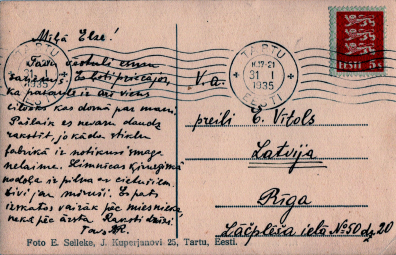 Miļā Elze!
Tavu vēstuli esmu
saņēmis. Ļoti priecājos,
ka pasaulē ir arī viens
cilvēks kas domā par mani.
Pašlaik es nevaru daudz
rakstīt, jo kādā stiklu
fabrikā ir notikusi maza
nelaime. Slimnīcas ķirurģiskā
nodaļa ir pilna ar cietušiem.
bet jau miruši. Es pats
izskatos vairāk pēc miesnieka,
nekā pēc ārsta. Raksti drīzi
Tavs R.
TARTU
31 I
1935
EESTI
TARTU
17-21
31 I
1935
EESTI
EESTI 5 s
V.a.
preili E. Vītols
Latvija
Rīga
Lāčplēša ielā № 50 dz 20
Foto E. Selleke, J. Kuperjanovi 25, Tartu, Eesti.